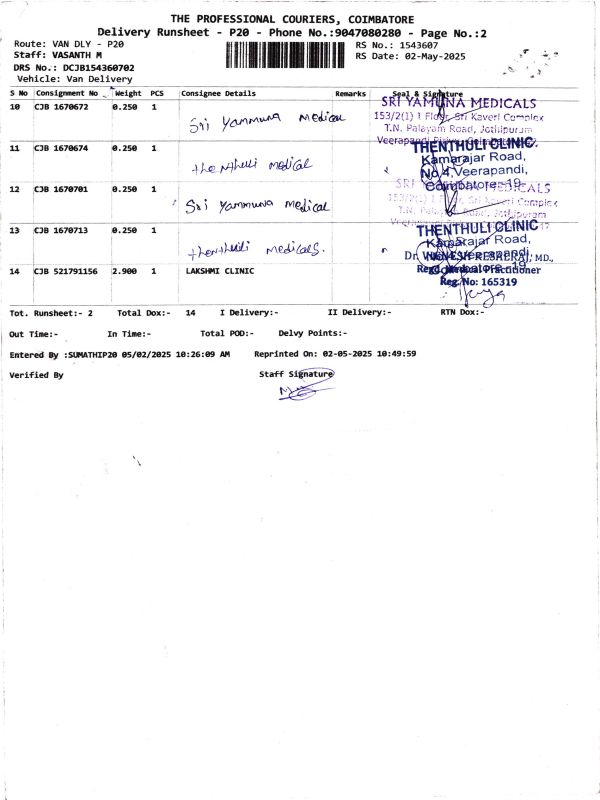 THE PROFESSIONAL COURIERS, COIMBATORE
Delivery Runsheet - P20 - Phone No.:9047080280 - Page No.:2
Route: VAN DLY - P20
RS No.: 1543607
Staff: VASANTH M
RS Date: 02-May-2025
DRS No.: DCJB154360702
Vehicle: Van Delivery
S No Consignment No Weight PCS Consignee Details Remarks Seal & Signature
10 CJB 1670672 0.250 1 Sri Yammuna Medical
SRI YAMUNA MEDICALS
153/2(1) 1 Floor, Sri Kaveri Complex
T.N. Palayam Road, Jothipuram
11 CJB 1670674 0.250 1 thenthuli medical
THENTHULI CLINIC.
Kamarajar Road,
No 4, Veerapandi,
Coimbatore - 19
12 CJB 1670701 0.250 1 Sri Yammuna medical
13 CJB 1670713 0.250 1 thenthuli medicals.
THENTHULI CLINIC
Kamarajar Road,
Regd. Medical Practitioner
Reg. No: 165319
14 CJB 521791156 2.900 1 LAKSHMI CLINIC
Tot. Runsheet:- 2 Total Dox:- 14 I Delivery:- II Delivery:- RTN Dox:-
Out Time:- In Time:- Total POD:- Delvy Points:-
Entered By :SUMATHIP20 05/02/2025 10:26:09 AM Reprinted On: 02-05-2025 10:49:59
Verified By Staff Signature